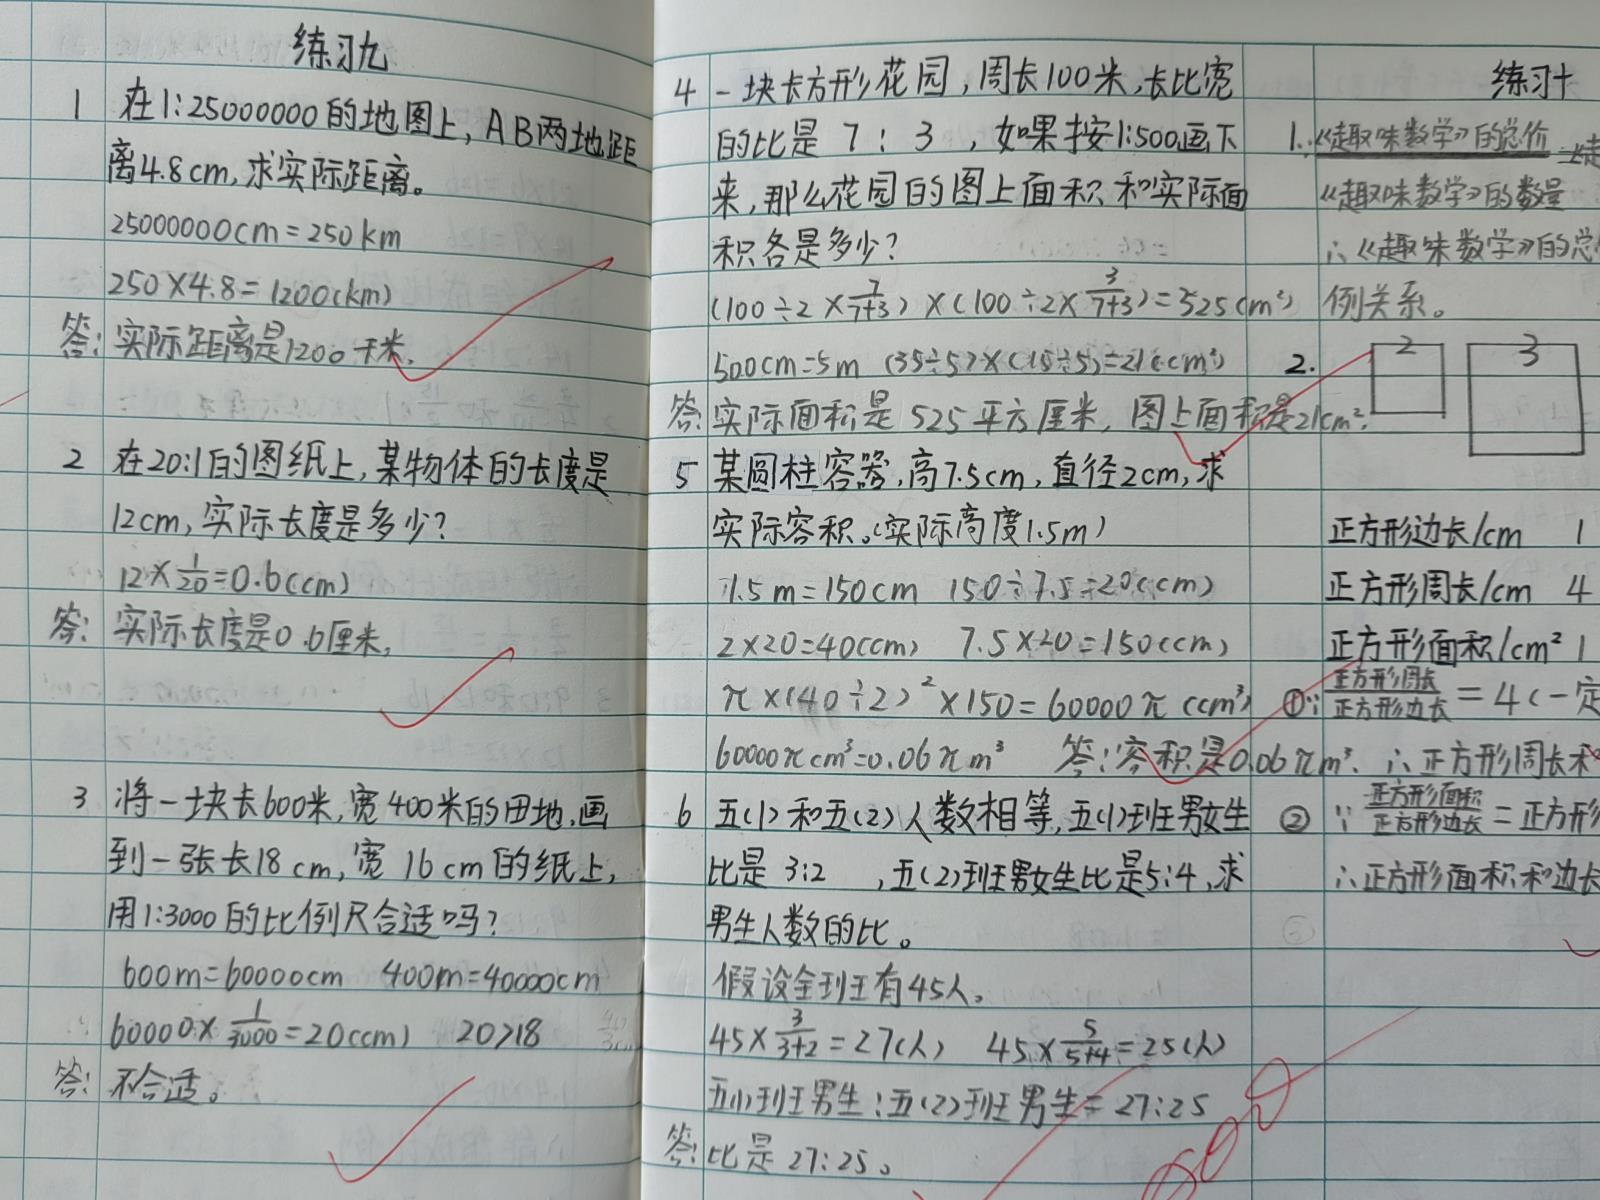 练习九
1 在1:25000000的地图上,AB两地距
离4.8cm,求实际距离。
25000000cm=250km
250×4.8=1200(km)
答:实际距离是1200千米.
2 在20:1的图纸上,某物体的长度是
12cm,实际长度是多少?
12×1/20=0.6(cm)
答:实际长度是0.6厘米,
3 将一块长600米,宽400米的田地,画
到一张长18cm,宽16cm的纸上,
用1:3000的比例尺合适吗?
600m=60000cm 400m=40000cm
60000×1/3000=20(cm) 20>18
答:不合适。
4 一块长方形花园,周长100米,长比宽
的比是7:3,如果按1:500画下
来,那么花园的图上面积和实际面
积各是多少?
(100÷2×7/7+3)×(100÷2×3/7+3)=525(m²)
500cm=5m (35÷5)×(15÷5)=21(cm²)
答:实际面积是525平方厘米,图上面积是21cm².
5 某圆柱容器,高7.5cm,直径2cm,求
实际容积。(实际高度1.5m)
1.5m=150cm 150÷7.5=20(cm)
2×20=40(cm) 7.5×20=150(cm)
π×(40÷2)²×150=60000π(cm³)
60000πcm³=0.06πm³ 答:容积是0.06πm³.
6 五(1)和五(2)人数相等,五(1)班男女生
比是3:2,五(2)班男女生比是5:4,求
男生人数的比。
假设全班有45人。
45×3/3+2=27(人) 45×5/5+4=25(人)
五(1)班男生:五(2)班男生=27:25
答:比是27:25。
练习十
1.∵《趣味数学》的总价
《趣味数学》的数量
∴《趣味数学》的总
例关系。
2. 2 3
正方形边长/cm 1
正方形周长/cm 4
正方形面积/cm² 1
①∵正方形周长/正方形边长=4(一定
∴正方形周长
②∵正方形面积/正方形边长=正方形
∴正方形面积和边长